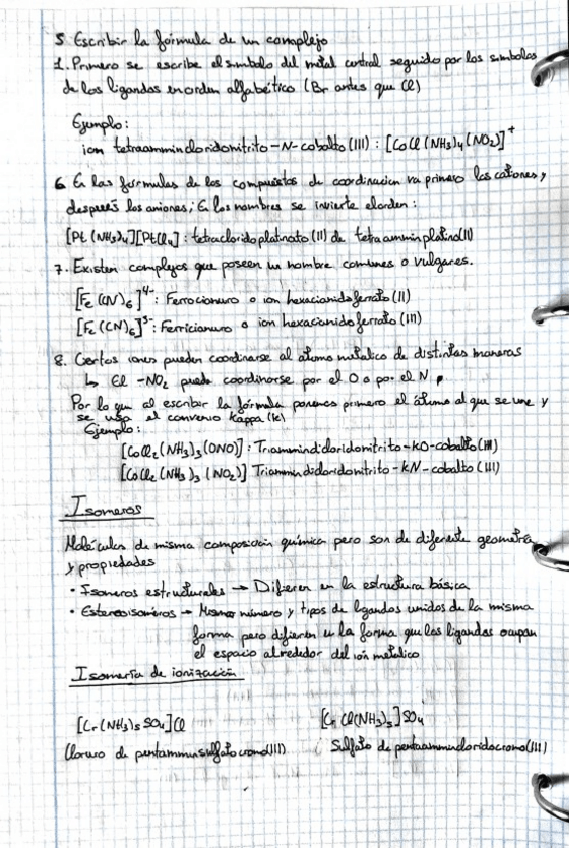 5 Escribir la fórmula de un complejo
1. Primero se escribe el simbolo del metal central seguido por los simbolos
de los ligandos en orden alfabético (Br antes que Cl)
Ejemplo:
ion tetraammincloridonitrito-N-cobalto (III) : [CoCl(NH₃)₄(NO₂)]⁺
6 En las formulas de los compuestos de coordinacion va primero los cationes y
después los aniones; En los nombres se invierte el orden :
[Pt(NH₃)₄][PtCl₄] : tetracloridoplatinato (II) de tetraamminplatino(II)
7. Existen complejos que poseen un nombre comunes o vulgares.
[Fe(CN)₆]⁴⁻ : Ferrocianuro o ion hexacianidoferrato (II)
[Fe(CN)₆]³⁻ : Ferricianuro o ion hexacianidoferrato (III)
8. Ciertos iones pueden coordinarse al átomo metalico de distintas maneras
↳ El -NO₂ puede coordinarse por el O o por el N
Por lo que al escribir la fórmula ponemos primero el átomo al que se une y
se usa el convenio Kappa (k)
Ejemplo :
[CoCl₂(NH₃)₃(ONO)] : Triammindicloridonitrito-kO-cobalto(III)
[CoCl₂(NH₃)₃(NO₂)] Triammindicloridonitrito-kN-cobalto (III)
Isomeros
Moléculas de misma composición química pero son de diferente geometria
y propiedades
• Isomeros estructurales → Difieren en la estructura básica
• Estereoisoméros → Mismo número y tipos de ligandos unidos de la misma
forma pero difieren en la forma que los ligandos ocupan
el espacio alrededor del ión metalico
Isomería de ionización
[Cr(NH₃)₅SO₄]Cl [CrCl(NH₃)₅]SO₄
Cloruro de pentamminsulfatocromo(III) Sulfato de pentaammincloridocromo(III)